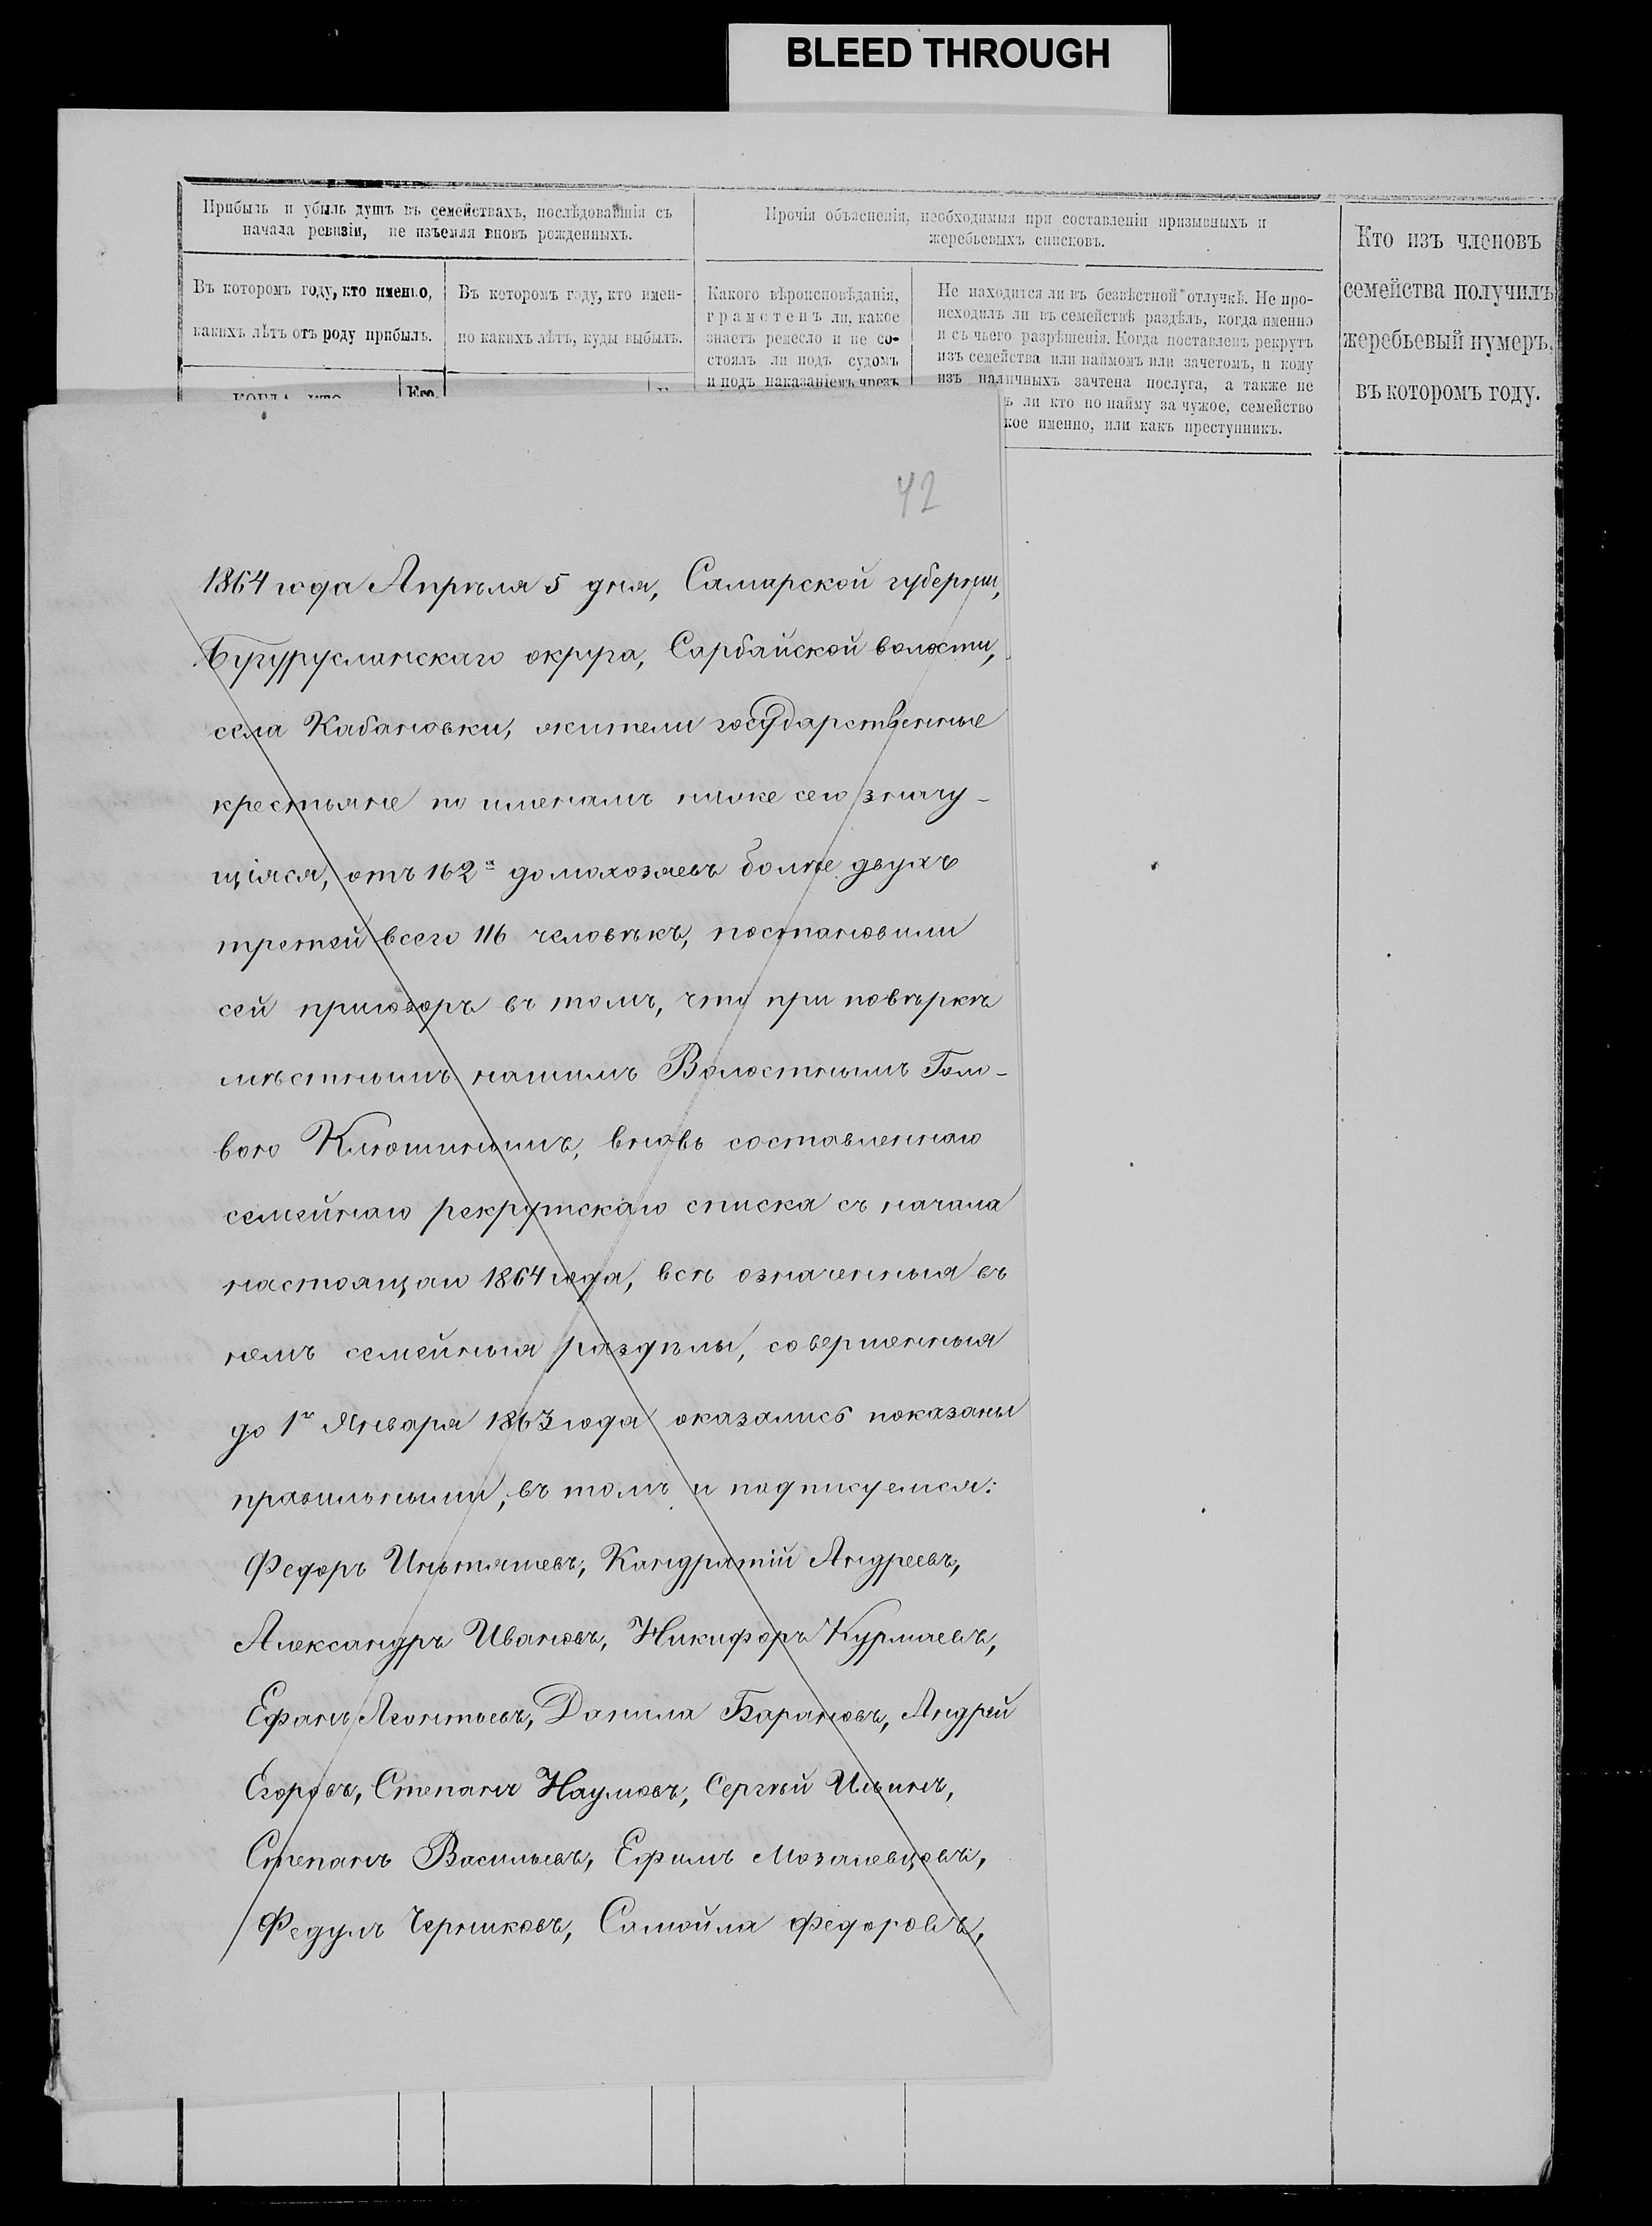 BLEED THROUGH
Прибыль и убыль душъ въ семействахъ, послѣдовавшія съ
начала ревизіи, не изъемля вновь рожденныхъ.
Прочія объясненія, необходимыя при составленіи призывныхъ и
жеребьевыхъ списковъ.
Кто изъ членовъ
семейства получилъ
жеребьевый нумеръ,
въ которомъ году.
Въ которомъ году, кто именно,
какихъ лѣтъ отъ роду прибылъ.
Въ которомъ году, кто имен-
но какихъ лѣтъ, куды выбылъ.
Какого вѣроисповѣданія,
грамотенъ ли, какое
знаетъ ремесло и не со-
стоялъ ли подъ судомъ
и подъ наказаніемъ чрезъ
Не находится ли въ безвѣстной отлучкѣ. Не про-
исходилъ ли въ семействѣ раздѣлъ, когда именно
и съ чьего разрѣшенія. Когда поставленъ рекрутъ
изъ семейства или наймомъ или зачетомъ, и кому
изъ наличныхъ зачтена послуга, а также не
ъ ли кто по найму за чужое, семейство
кое именно, или какъ преступникъ.
42
1864 года Апрѣля 5 дня, Самарской губерніи,
Бугурусланскаго округа, Сарбайской волости,
села Кабановки, жители государственные
крестьяне по именамъ ниже сего значу-
щіяся, отъ 162х домохозяевъ болѣе двухъ
третей всего 116 человѣкъ, постановили
сей приговоръ въ томъ, что при повѣркѣ
мѣстнымъ нашимъ Волостнымъ Голо-
вою Клюшинымъ, вновь составленнаго
семейнаго рекрутскаго списка съ начала
настоящаго 1864 года, всѣ означенныя въ
немъ семейныя раздѣлы, совершенныя
до 1го Января 1863 года оказались показаны
правильными, въ томъ и подписуемся:
Федоръ Игнташевъ, Кандратій Андреевъ,
Александръ Ивановъ, Никифоръ Курмаевъ,
Ефанъ Леонтьевъ, Данила Барановъ, Андрей
Егоровъ, Степанъ Наумовъ, Сергѣй Ильинъ,
Степанъ Васильевъ, Ефимъ Мозалевцовъ,
Федулъ Черниковъ, Самойла Федоровъ,